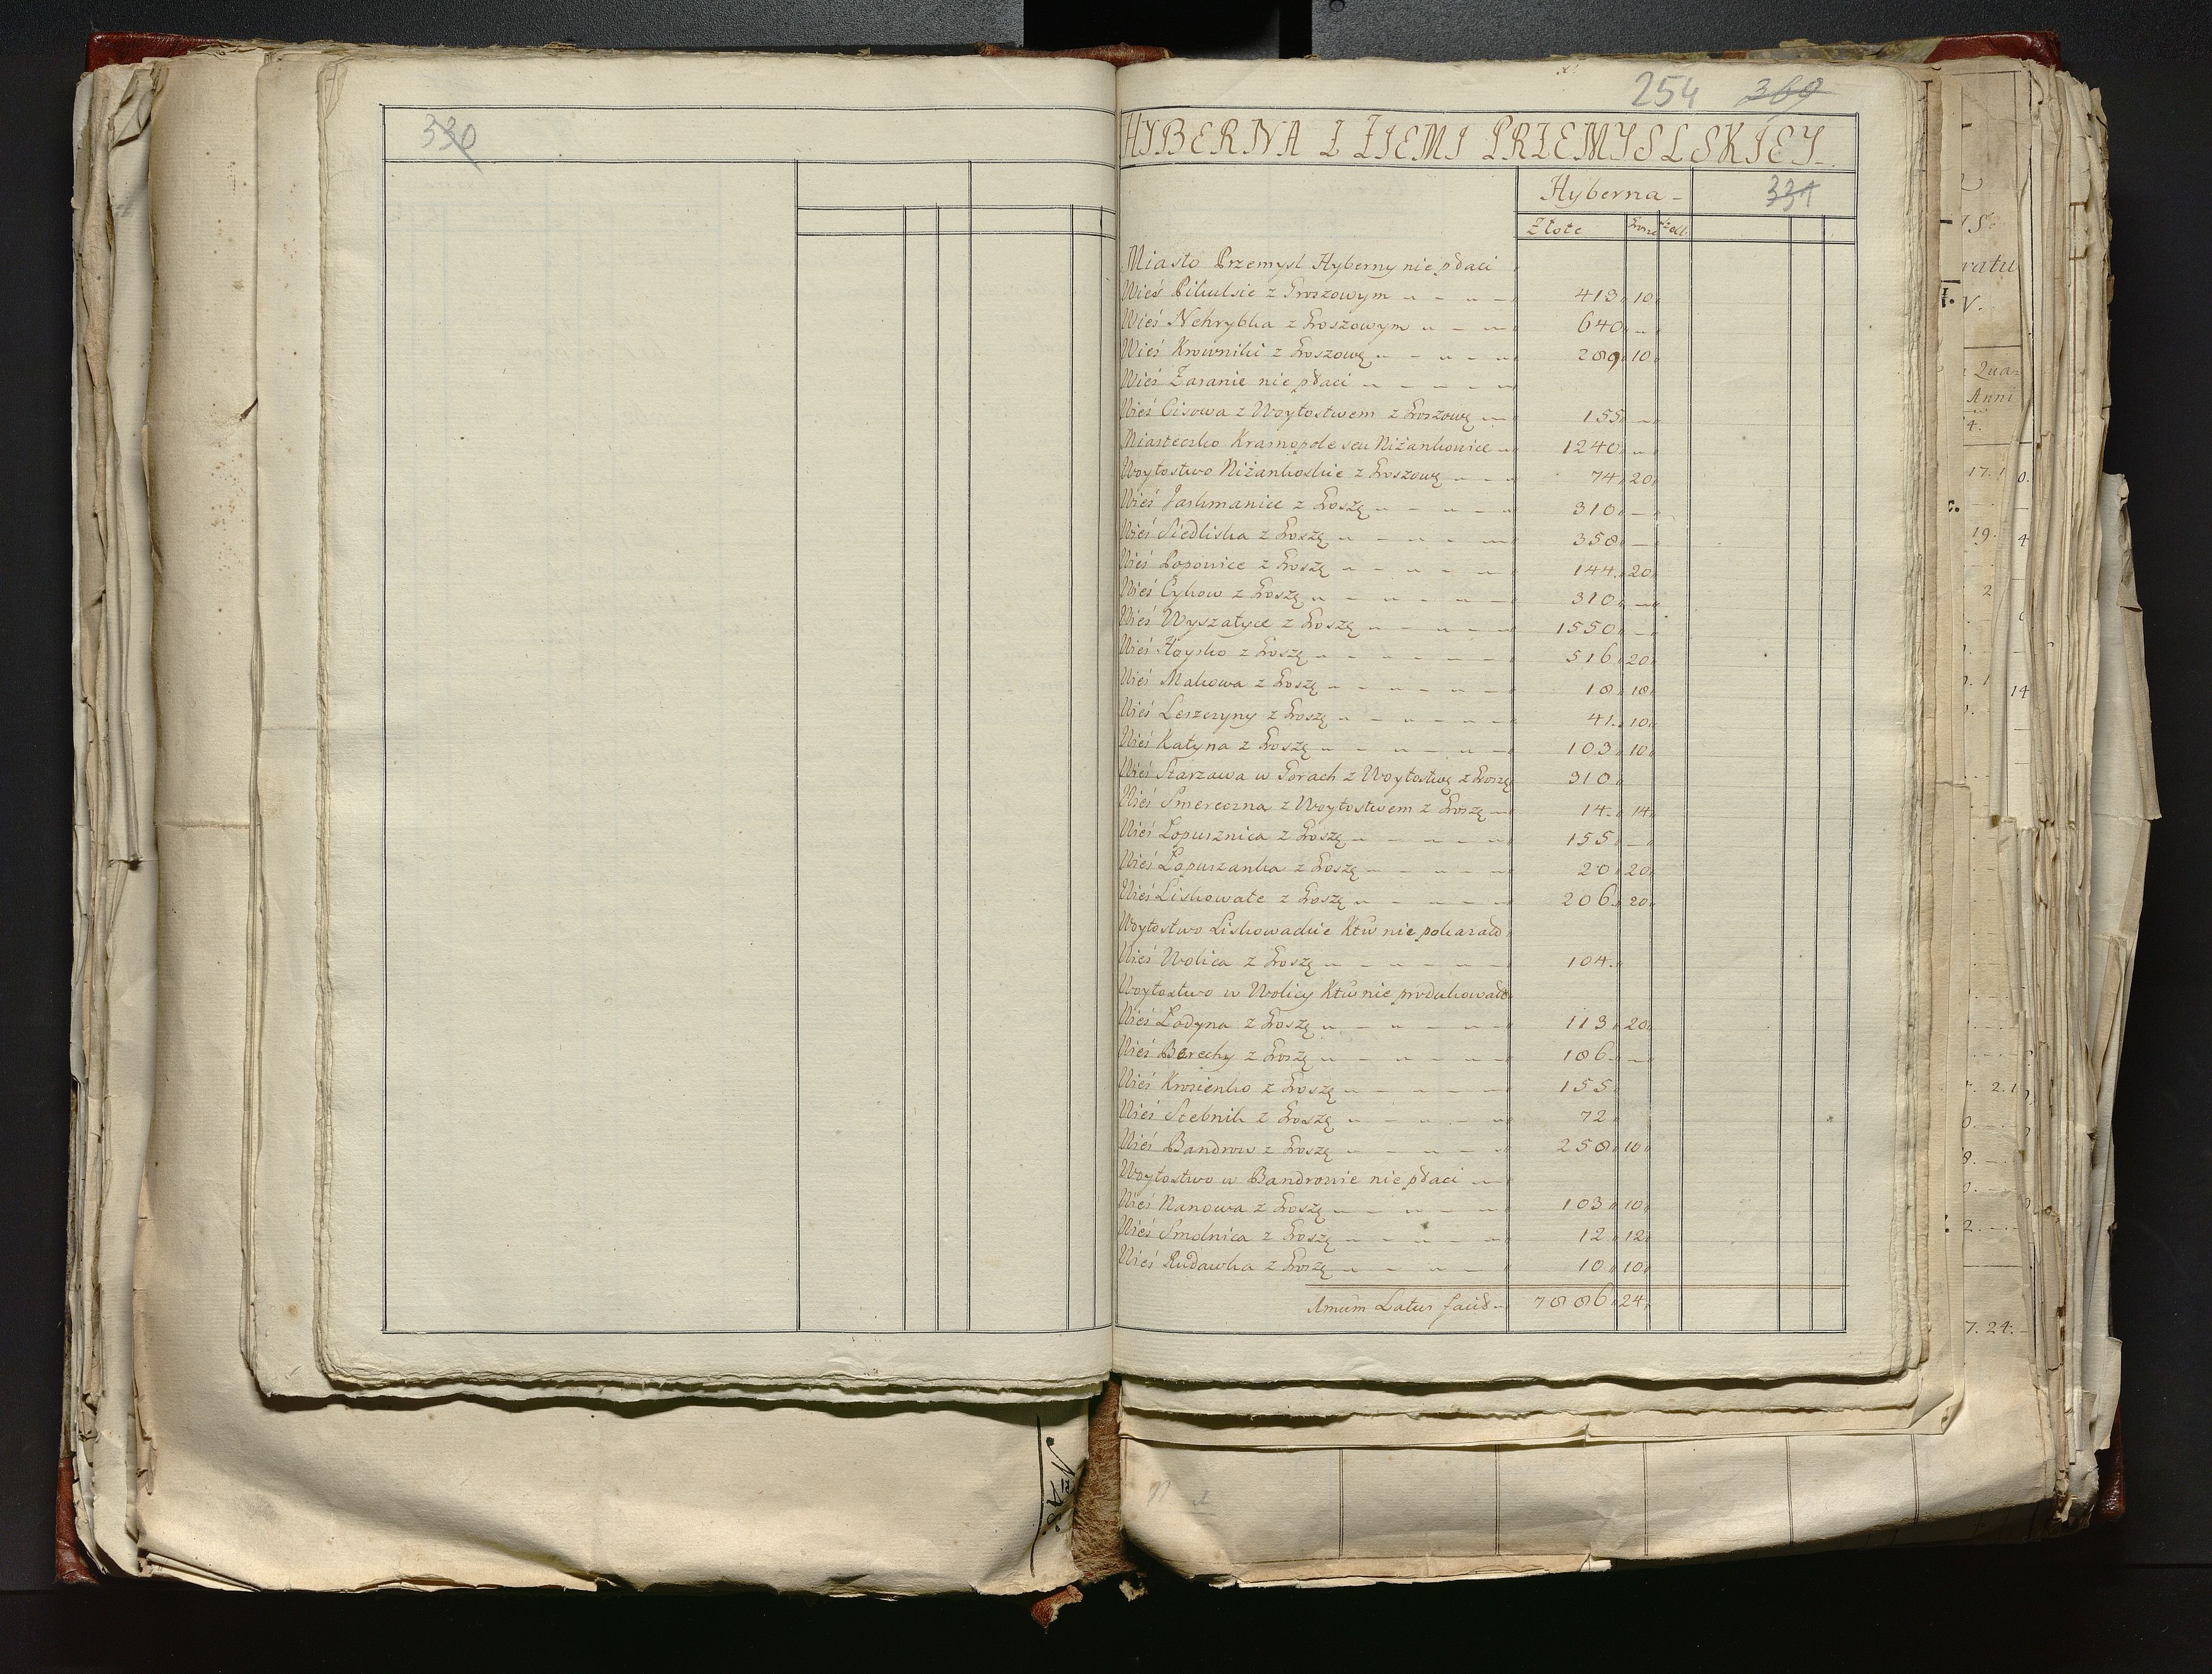 330
254 360
HYBERNA Z ZIEMI PRZEMYSLSKIEY
Hyberna 331
Złote Grosze Szel:
Miasto Przemysl Hyberny nie płaci
Wieś Pikulsie z Groszowym 413 10
Wieś Nehrybka z Groszowym 640 —
Wieś Krowniki z Groszowę 289 10
Wieś Zasanie nie płaci
Wieś Cisowa z Woytostwem z Groszowę 155 —
Miasteczko Krasnopole seu Niżankowice 1240 —
Woytostwo Niżankoskie z Groszowę 74 20
Wieś Jaksmanice z Groszę 310 —
Wieś Siedliska z Groszę 358 —
Wieś Popowice z Groszę 144 20
Wieś Cykow z Groszę 310 —
Wieś Wyszatyce z Groszę 1550 —
Wieś Hoysko z Groszę 516 20
Wieś Makowa z Groszę 18 18
Wieś Leszczyny z Groszę 41 10
Wieś Katyna z Groszę 103 10
Wieś Starzawa w Gorach z Woytostwę z Groszę 310
Wieś Smereczna z Woytostwem z Groszę 14 14
Wieś Łopusznica z Groszę 155 —
Wieś Łopuszanka z Groszę 20 20
Wieś Liskowate z Groszę 206 20
Woytostwo Liskowackie Ktw nie pokazało
Wieś Wolica z Groszę 104
Woytostwo w Wolicy Ktw nie produkowało
Wieś Łodyna z Groszę 113 20
Wieś Berechy z Groszę 186 —
Wieś Krosienko z Groszę 155
Wieś Stebnik z Groszę 72
Wieś Bandrow z Groszę 258 10
Woytostwo w Bandrowie nie płaci
Wieś Nanowa z Groszę 103 10
Wieś Smolnica z Groszę 12 12
Wieś Rudawka z Groszę 10 10
Latus facit 7886 24
ratu
V.
Quar
Anni
4.
17. 1
19.
2
14
2. 1
7. 24.